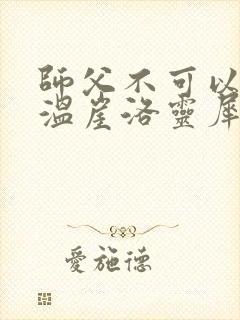 師父不可以
溫崖洛靈犀
愛施德